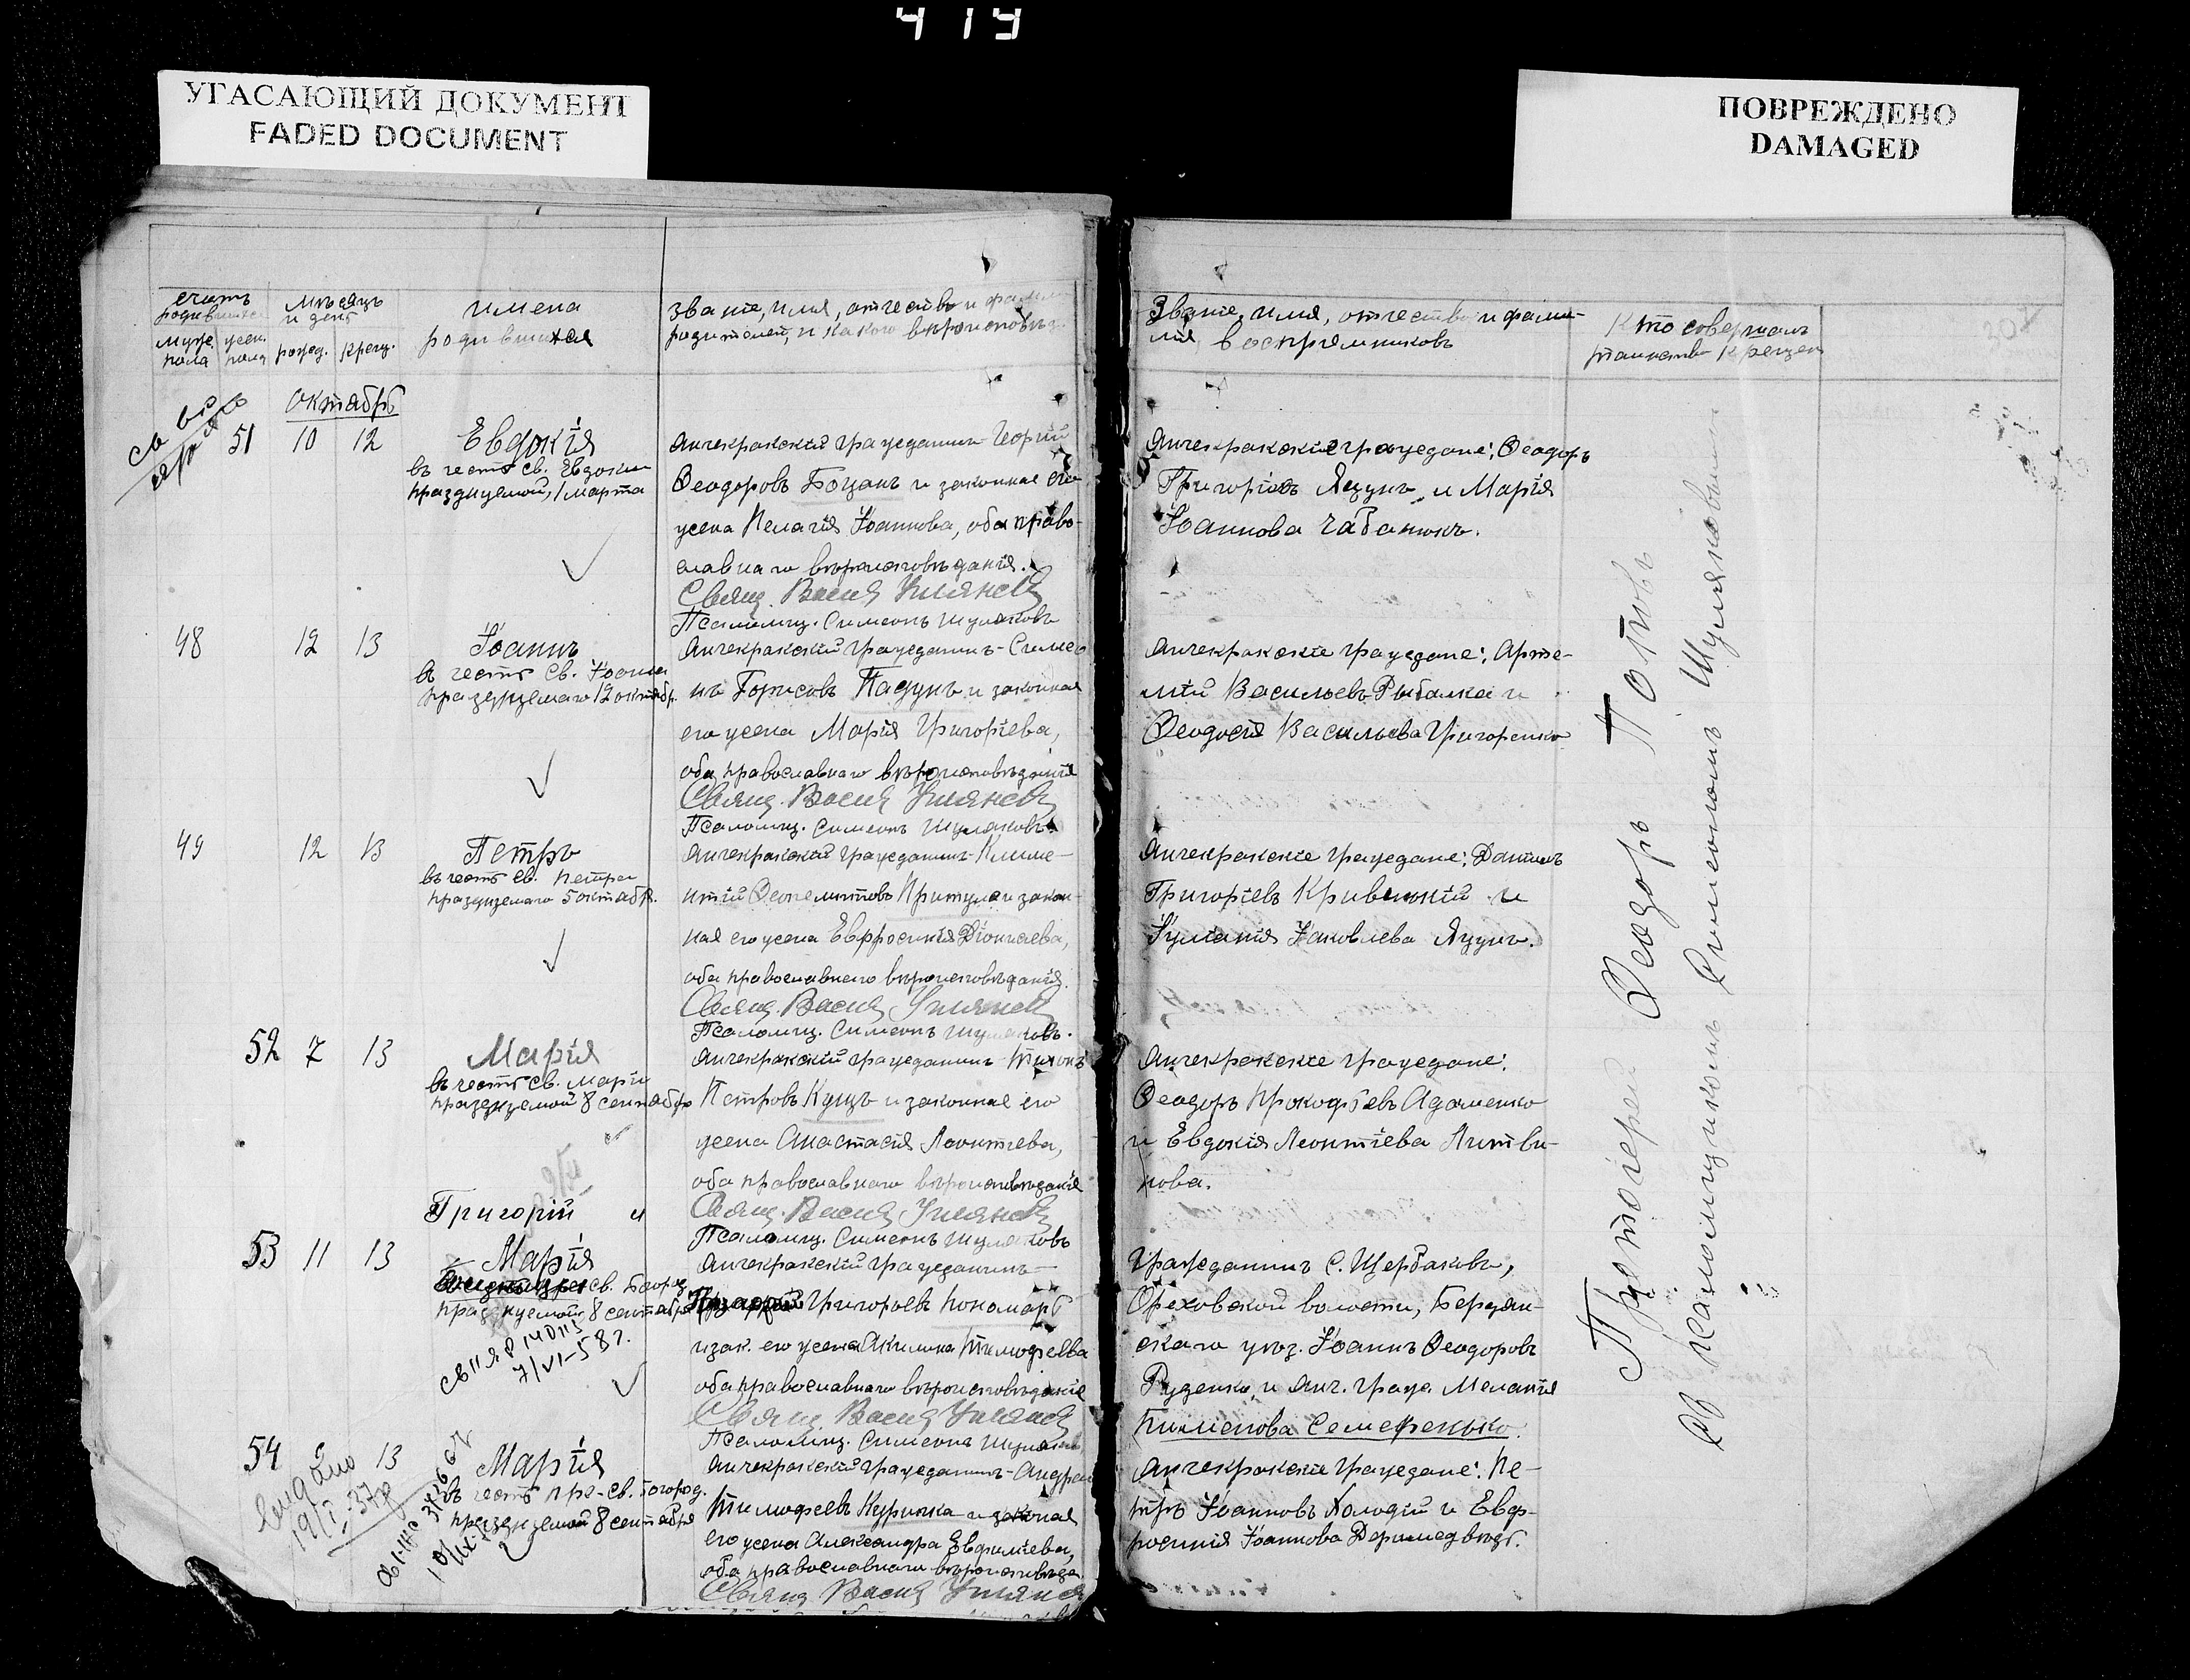 419
УГАСАЮЩИЙ ДОКУМЕНТ
FADED DOCUMENT
ПОВРЕЖДЕНО
DAMAGED
счетъ
родивших
муж. пола
жен. пола
Мѣсяцъ и день
рожд.
крещ.
имена
родившихся
Званіе, имя, отчество и фамил
родителей, и какого вѣроисповѣд.
Званіе, имя, отчество и фами-
лія, воспріемниковъ
Кто совершалъ
таинство крещен
Октябрь
51 10 12
Евдокія
въ честь св. Евдокіи
празднуемой, 1 марта
Анчекракскій гражданинъ Георгій
Ѳеодоровъ Боцанъ и законная его
жена Пелагія Іоаннова, оба право-
славнаго вѣроисповѣданія.
Свящ. Васил
Псаломщ. Симеонъ Шуляковъ
Анчекракскіе граждане: Ѳеодоръ
Григоріевъ Яцунъ и Марія
Іоаннова Чабанюкъ.
48 12 13
Іоаннъ
въ честь св. Іоанна
празднуемаго 12 октябр.
Анчекракскій гражданинъ - Симео
нъ Борисовъ Падунъ и законная
его жена Марія Григоріева,
оба православнаго вѣроисповѣданія
Свящ. Васил
Псаломщ. Симеонъ Шуляковъ.
Анчекракскіе граждане: Арте-
мій Васильевъ Рыбалка и
Ѳеодосія Васильева Григоренко
49 12 13
Петръ
въ честь св. Петра
празднуемаго 5 октябр.
Анчекракскій гражданинъ Климе-
нтій Ѳеопемптовъ Притула и закон-
ная его жена Евфросинія Діонисіева,
оба православнаго вѣроисповѣданія.
Свящ. Васил
Псаломщ. Симеонъ Шуляковъ.
Анчекракскіе граждане: Даніилъ
Григоріевъ Кривицкій и
Іуліанія Іаковлева Яцунъ.
52 7 13
Марія
въ честь св. Маріи
празднуемой 8 сентября
Анчекракскій гражданинъ Тихонъ
Петровъ Куцъ и законная его
жена Анастасія Леонтіева,
оба православнаго вѣроисповѣданія
Свящ. Васил
Псаломщ. Симеонъ Шуляковъ
Анчекракскіе граждане:
Ѳеодоръ Прокофьевъ Адаменко
и Евдокія Леонтіева Литви-
нова.
Григорій и
53 11 13
Марія
св. Богород.
празднуемой 8 сентября
7/VI-58 г.
Анчекракскій гражданинъ
Григорьевъ Пономарь
и зак. его жена Акилина Тимофеева
оба православнаго вѣроисповѣданія
Свящ. Васил
Псаломщ. Симеонъ Шуляковъ
Гражданинъ С. Щербаковъ,
Ореховской волости, Бердян-
скаго уѣз. Іоаннъ Ѳеодоровъ
Руденко, и Анч. гражд. Меланія
Пименова Семеренько.
54 13
Марія
въ честь пр-св. Богород.
празднуемой 8 сентября
19/I-37 г
Анчекракскій гражданинъ - Андрей
Тимофеевъ Курочка и законная
его жена Александра Евфиміева,
оба православнаго вѣроисповѣда
Свящ. Васил
Анчекракскіе граждане: Пе-
тръ Іоанновъ Холодій и Евф-
росинія Іоаннова Деримедвѣдь.
Протоіерей Ѳеодоръ Поповъ
съ псаломщикомъ Симеономъ Шуляковымъ